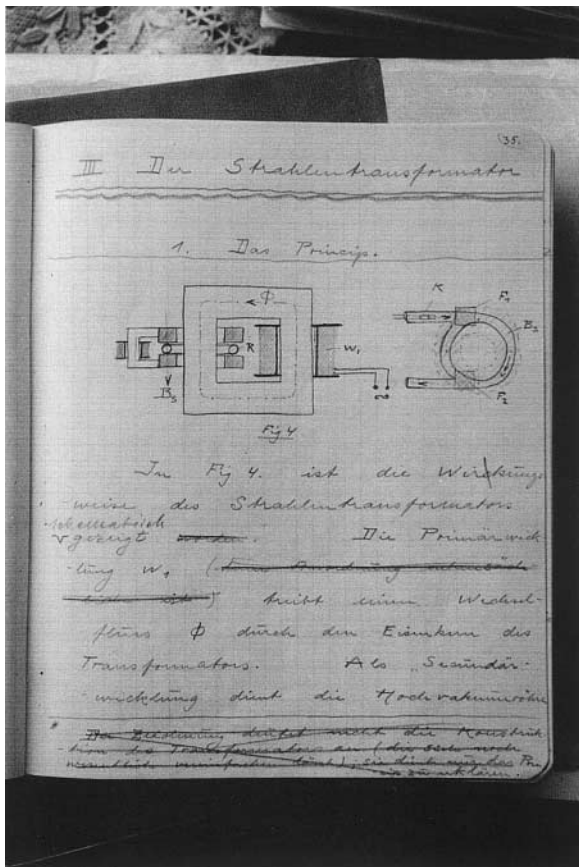 35.
III Der Strahlentransformator
1. Das Princip.
Φ
K
F₁
R
W₁
B₂
Bₛ
F₂
Fig 4
In Fig 4. ist die Wirckungs
-weise des Strahlentransformators
schematisch
gezeigt worden. Die Primärwick
-lung W₁ (Eine Anordnung
treibt einen Wechsel-
fluss Φ durch den Eisenkern des
Transformators. Als „Secundär-
-wicklung dient die Hochvakuumröhre
Die Zeichnung deutet nicht die Konstruk
-tion des Transformators an (die sich noch
wesentlich vereinfachen lässt); sie dient nur das Prin
cip zu erklären.